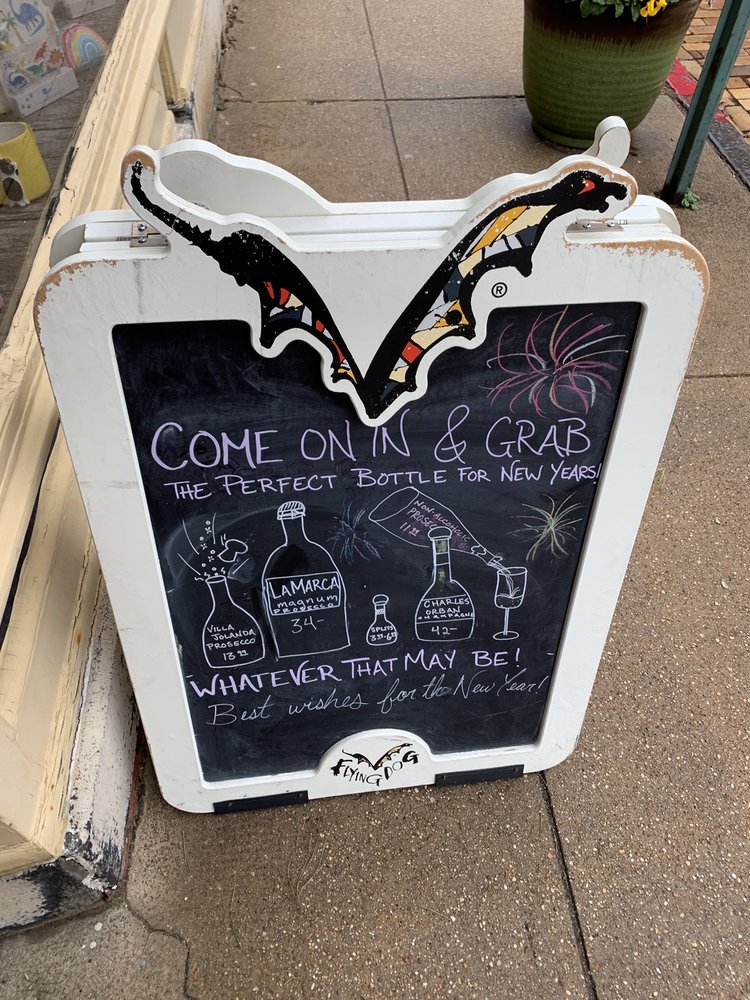 ®
COME ON IN & GRAB
THE PERFECT BOTTLE FOR NEW YEARS!
NON-ALCOHOLIC
PROSECCO
11.99
VILLA
JOLANDA
PROSECCO
13.99
LAMARCA
magnum
PROSECCO
34-
SPLITS
CHARLES
ORBAN
CHAMPAGNE
42-
WHATEVER THAT MAY BE!
Best wishes for the New Year!
FLYING DOG